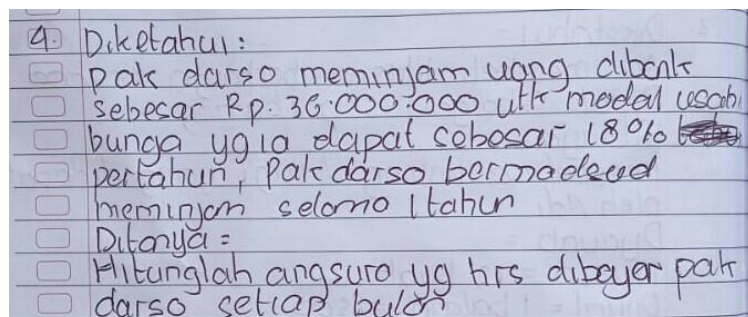 4. Diketahui:
pak darso meminjam uang dibank
sebesar Rp. 36.000.000 utk modal usaha
bunga yg ia dapat sebesar 18%
pertahun, Pak darso bermadsud
meminjam selama 1 tahun
Ditanya =
Hitunglah angsura yg hrs dibayar pak
darso setiap bulan